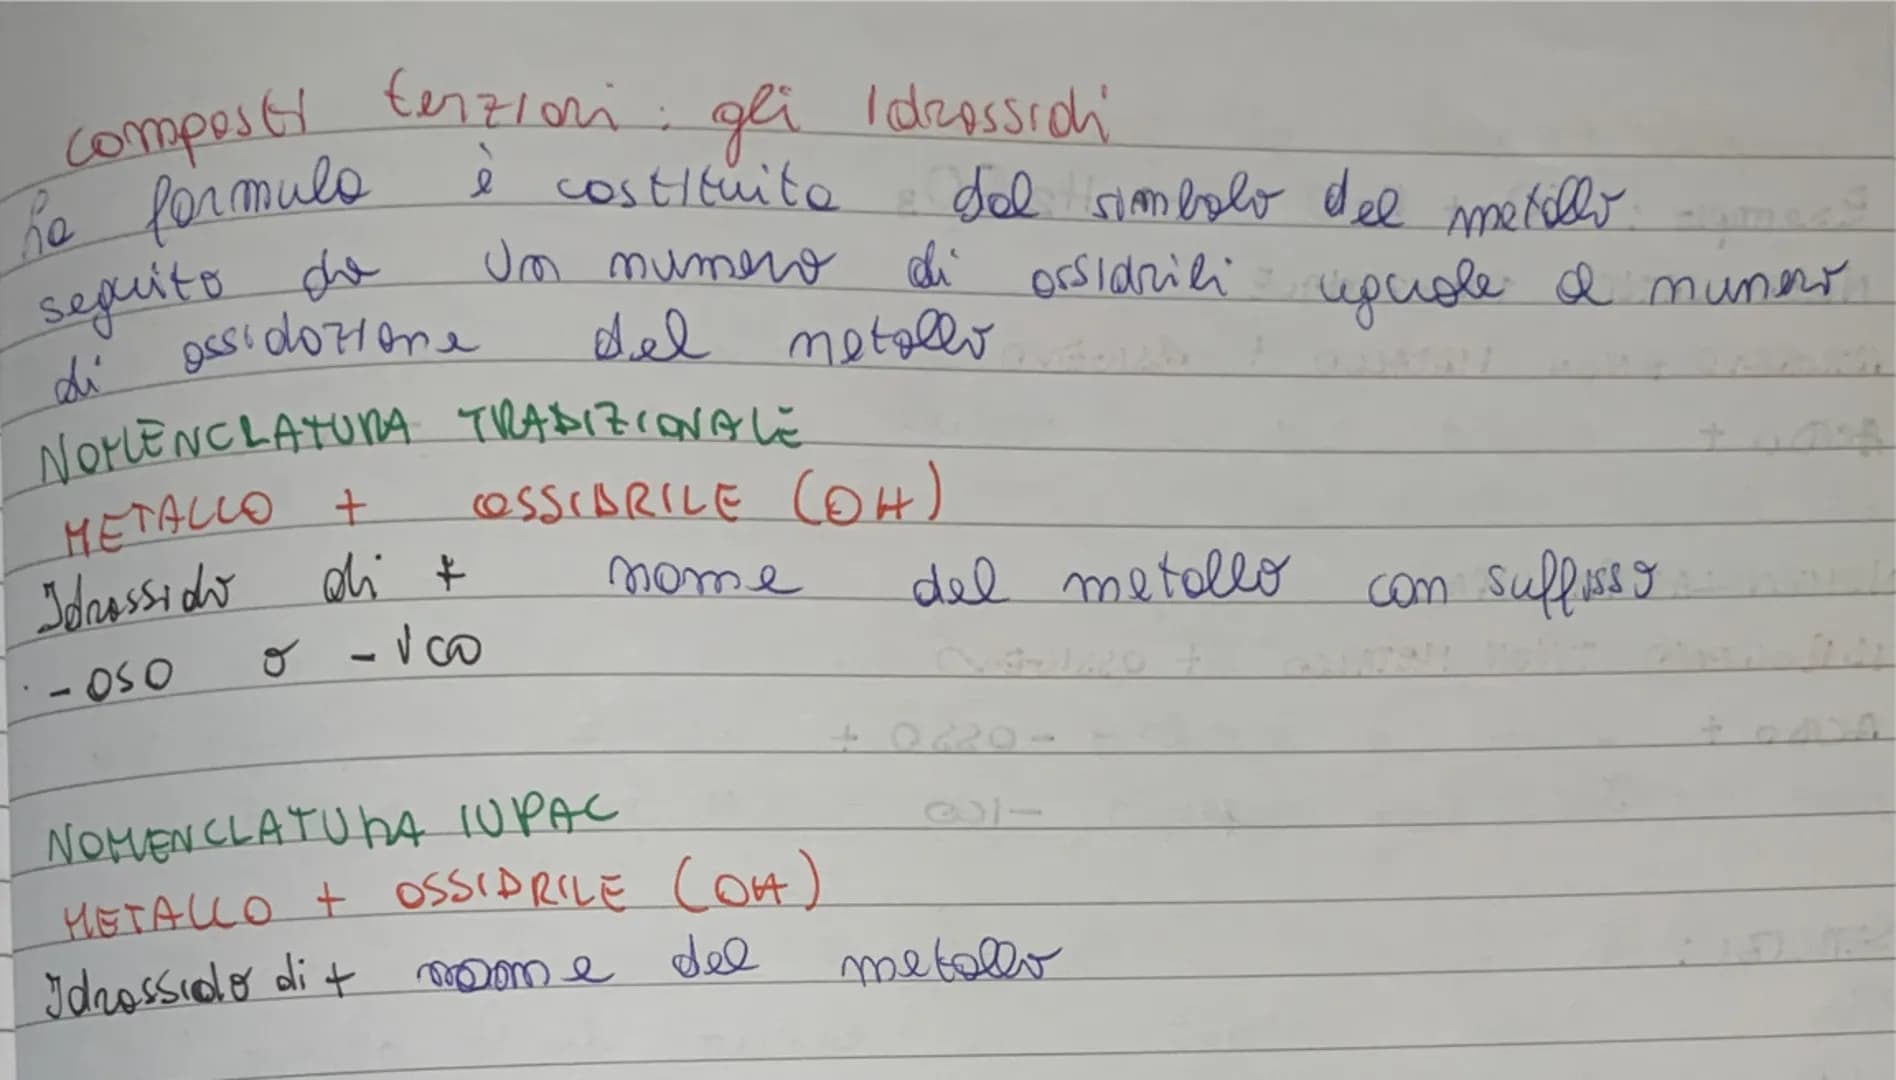 composti terziari: gli Idrossidi
La formula è costituita dal simbolo del metallo
seguito da un numero di ossidrili uguale a numero
di ossidazione del metallo
NOMENCLATURA TRADIZIONALE
METALLO + OSSIDRILE (OH)
Idrossido di + nome del metallo con suffisso
-OSO o -ICO
NOMENCLATURA IUPAC
METALLO + OSSIDRILE (OH)
Idrossido di + nome del metallo